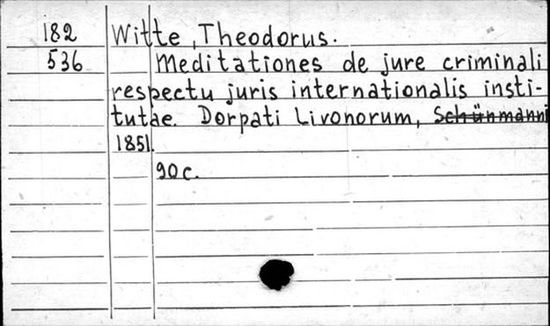 182 Witte, Theodorus.
536 Meditationes de jure criminali
respectu juris internationalis insti-
tutae. Dorpati Livonorum, Schünmanni
1851.
90 c.